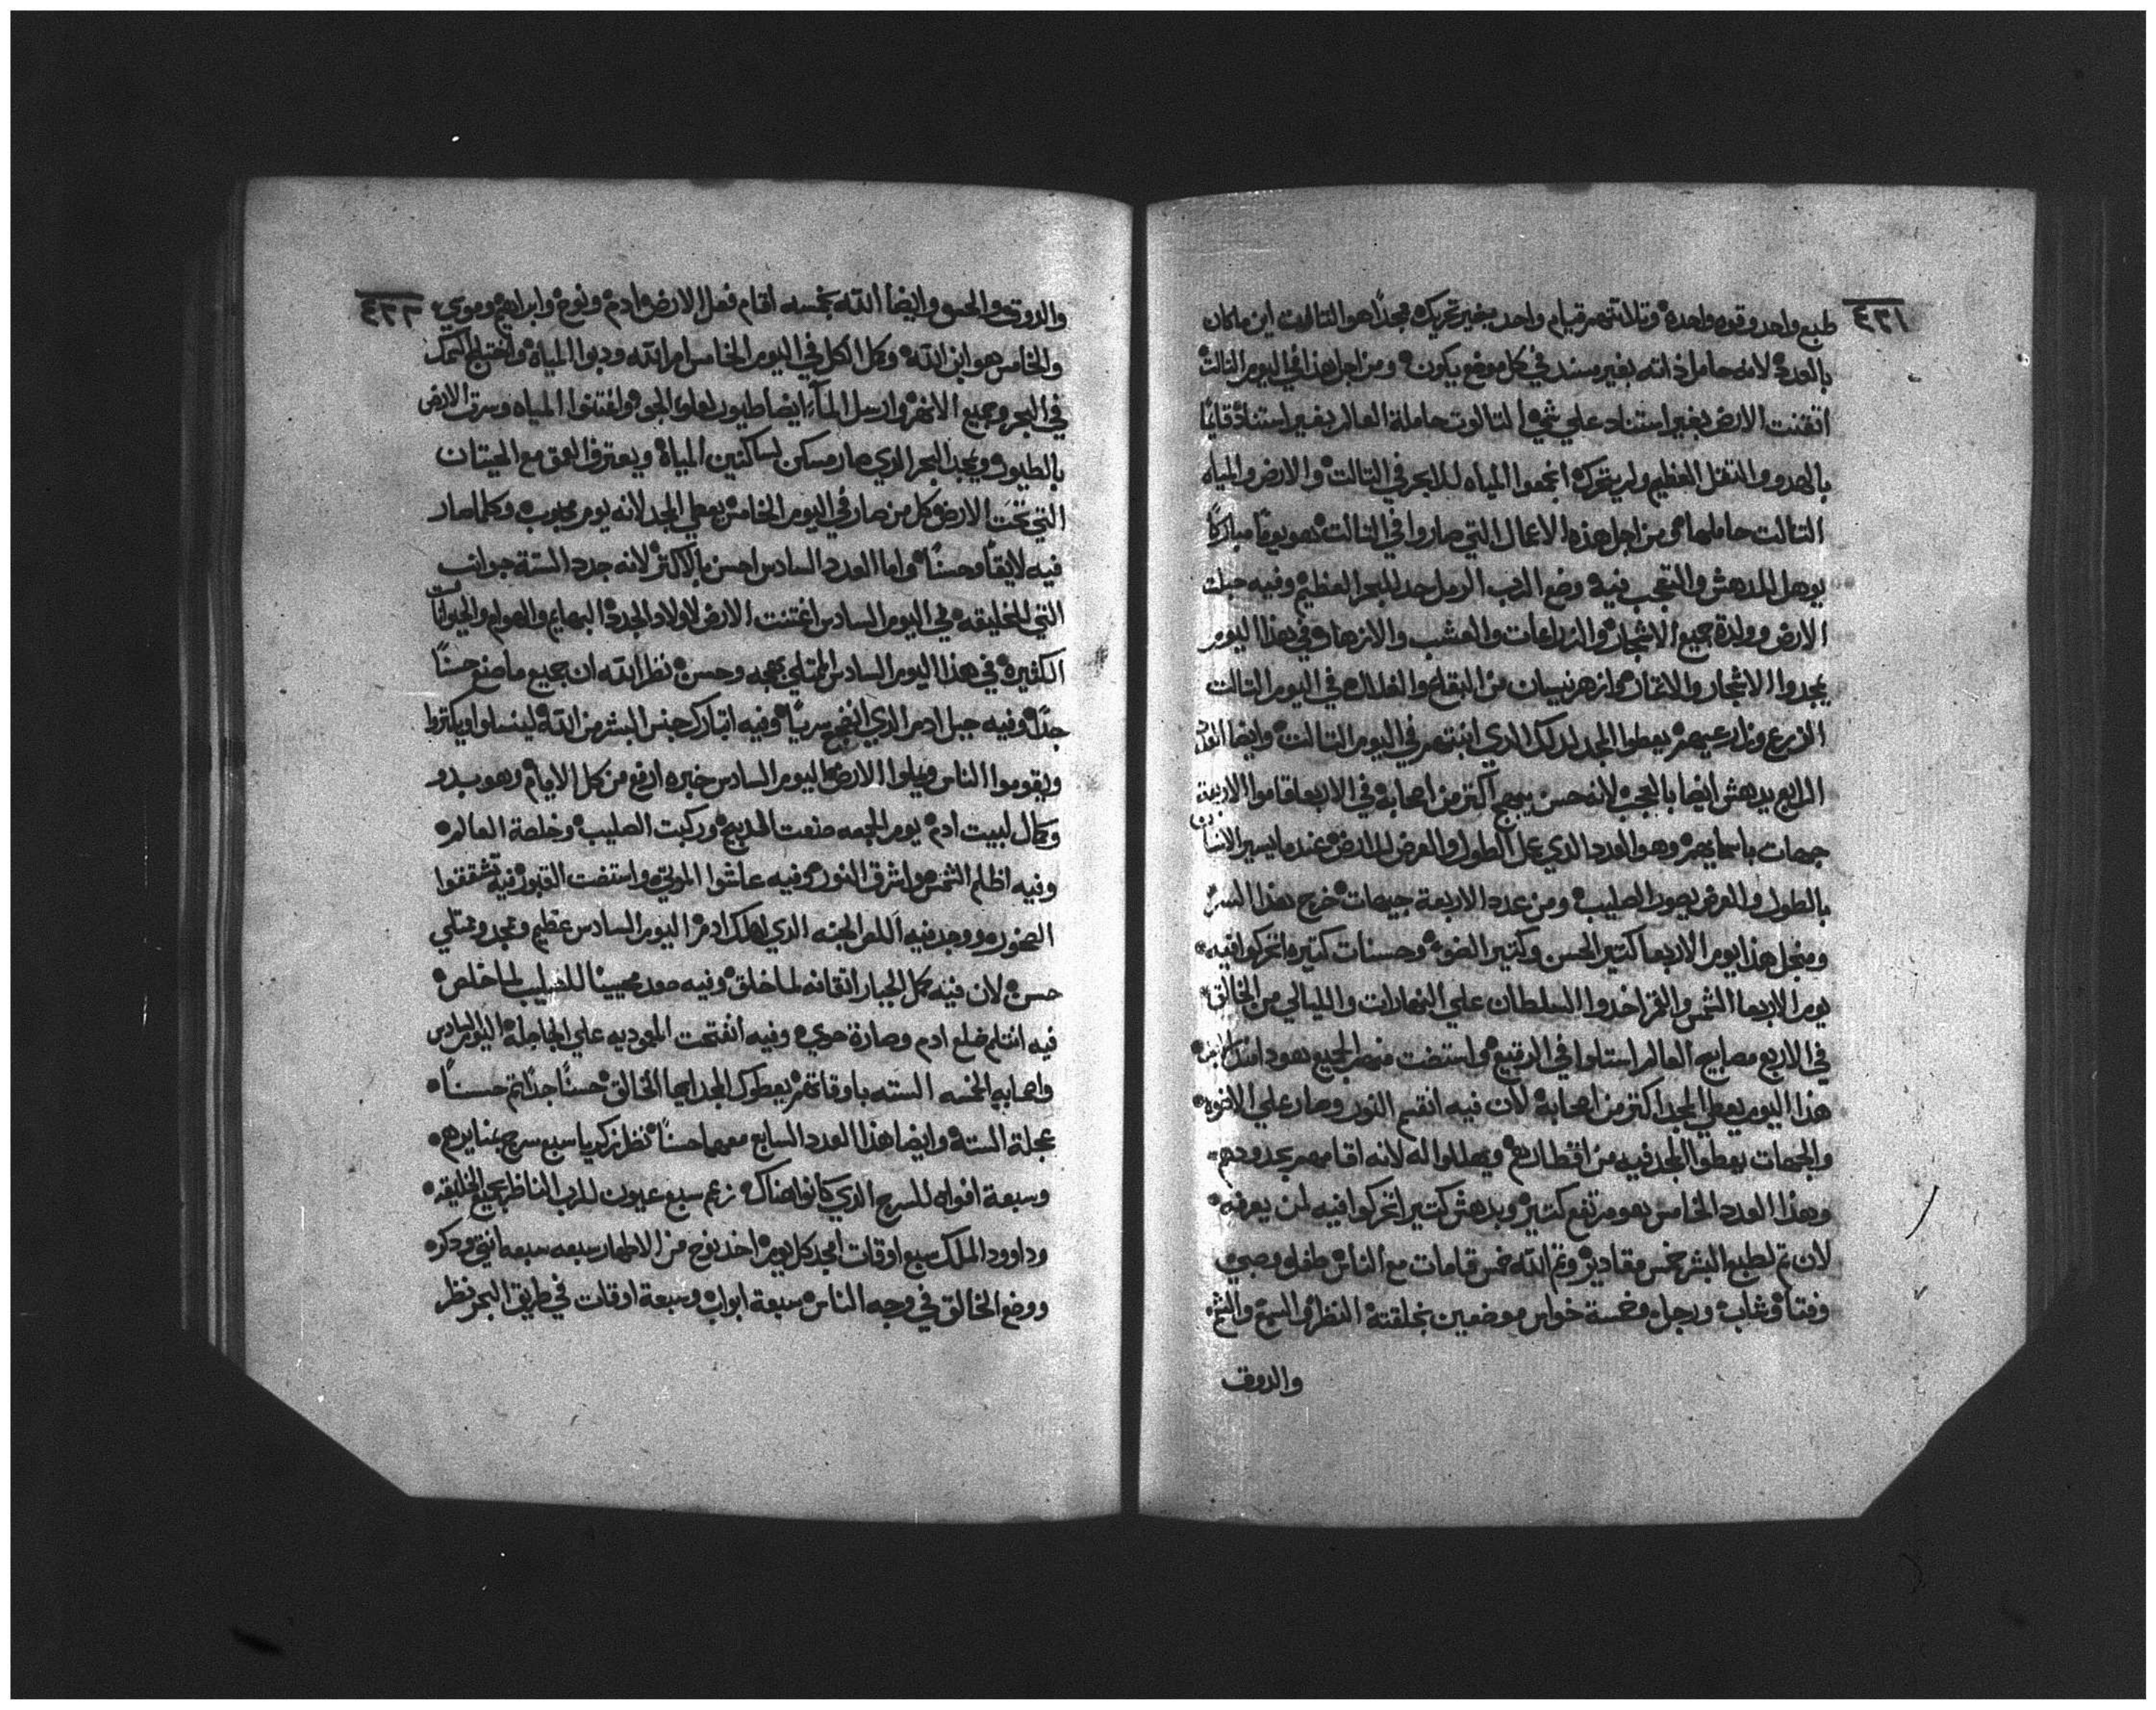 ٤٣١
طبع واحد وقوه واحدة وتلاتتهم قيام واحد بغير تحريك مجدًا هو التالوت اين ماكان
بالعدد لانه حامل ذاته بغير مسند في كل موضع يكون ومن اجل هذا في اليوم التالت
اتقنت الارض بغير استناد علي شي التالوت حاملة العالم بغير استناد قايمًا
بالهدو والتقل العظيم ولم يتحرك اجمعوا المياه للابحر في التالت والارض والمياه
التالت حاملها من اجل هذه الاعمال التي صاروا في التالت هو يومًا مباركًا
يوهل للدهش والتعجب فيه وضع الرب الرمل حد للبحر العظيم وفيه حبلت
الارض وولدة جميع الاشجار والزراعات والعشب والازهار في هذا اليوم
يمجدوا الاشجار والاتمار وازهر نيسان من البقلع والغلال في اليوم التالت
الزرع وزارعيهم يعطوا المجد لدلك الدي انبتهم في اليوم التالت وايضا العدد
الرابع يدهش ايضا بالعجب لانه حسن بهيج اكتر من اصحابه في الاربعا قاموا الاربعة
جهات باسمايهم وهو العدد الدي عمل الطول والعرض للارض عندما يسير الانسان
بالطول والعرض يصور الصليب ومن عدد الاربعة جيهات خرج هذا السر
ومنجل هذا يوم الاربعا كتير الحسن وكتير الضو وحسنات كتيره اتحركوا فيه
يوم الاربعا الشمس والقمر اخدوا السلطان علي النهارات والليالي من الخالق
في الاربع مصابيح العالم استلوا في الرقيع واستضت منهم الجميع
هذا اليوم يعطي المجد اكتر من اصحابه لان فيه انقسم النور وصار علي الاضوه
والجهات يعطوا المجد فيه من اقطارهم ويهللوا له لانه اقامهم بحدودهم
وهذا العدد الخامس هو مرتفع كتير وبدهش كتير اتحركوا فيه لمن يعرفه
لان تم لطبع البشر خمس مقادير وتم الله خمس قامات مع الناس طفل وصبي
وفتا وشاب ورجل وخمسة خواس موضعين بخلقته النظر والسمع والشم
والدوق
٤٣٢
والدوق والحس وايضا الله بخمسه اقام فعل الارض ادم ونوح وابراهيم وموسي
والخامس هو ابن الله وكمل الكل في اليوم الخامس امر الله ودبوا المياه واختبج السمك
في البحر وجميع الانهر وارسل الماء ايضا طيور لعلو الجو واغتنوا المياه وسرت الارض
بالطيور ويمجد البحر الدي صار مسكن لساكنين المياه ويعترف العمق مع الحيتان
التي تحت الارض كل من صار في اليوم الخامس يعطي المجد لانه يوم محبوب وكلما صار
فيه لايقًا وحسنًا واما العدد السادس احسن بالاكتر لانه جدد الستة جوانب
التي للخليقه في اليوم السادس اغتنت الارض لاولاد الجدد البهايم والهوام والحيوانات
الكثيره في هذا اليوم السادس الممتلي بهجه وحسن نظر الله ان جميع ما صنع حسنًا
جدًا وفيه جبل ادم الدي انفجع سريًا وفيه اتبارك جنس البشر من الله لينسلوا ويكتروا
ويقوموا الناس ويملوا الارض اليوم السادس خبره ارفع من كل الايام وهو بدو
وكمال لبيت ادم يوم الجمعه صنعت المديح وركبت الصليب وخلصة العالم
وفيه اظلم الشمس واشرق النور وفيه عاشوا الموتي واستضت القبور فيه تشققوا
الصخور ووجد فيه اللص الجنه الدي اهلك ادم اليوم السادس عظيم ومجد وممتلي
حسن لان فيه كمل الجبار اتقانه لما خلق وفيه صعد محيينا للصليب لما خلص
فيه انتلم ضلع ادم وصارة حوي وفيه انفتحت المعموديه علي الجاجلة اليوم السادس
واصحابه الخمسه الستة باوقاتهم يعطوك المجد ايها الخالق حسنًا جدًا تم حسنًا
بجملة الستة وايضا هذا العدد السابع معهما حسنًا نظر زكريا سبع سرج بمنايرهم
وسبعة افواه للسرج الدي كانوا هناك زعم سبع عيون للرب الناظر بجميع الخليقه
وداوود الملك سبع اوقات امجد كل يوم اخد نوح من الاطهار سبعه سبعه انتي ودكر
ووضع الخالق في وجه الناس سبعة ابواب وسبعة اوقات في طريق البحر نظر